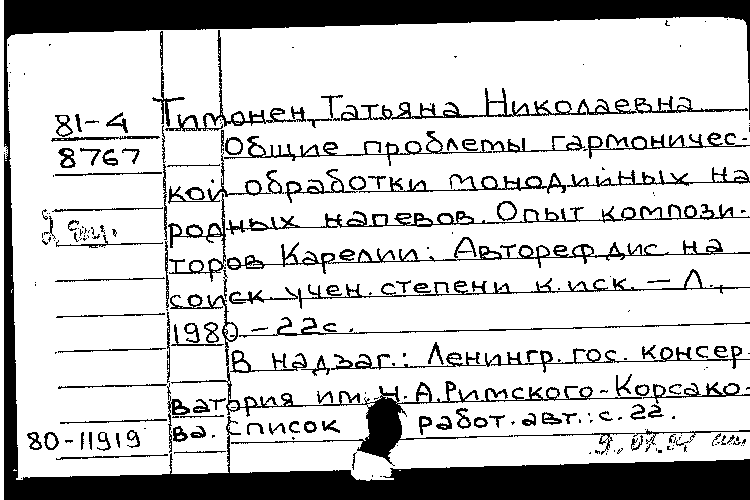 81-4 Тимонен, Татьяна Николаевна
8767 Общие проблемы гармоничес-
кой обработки монодийных на
родных напевов. Опыт компози-
торов Карелии: Автореф. дис. на
соиск. учен. степени к. иск. — Л.,
1980 – 22с.
В надзаг.: Ленингр. гос. консер
ватория им. Н.А.Римского-Корсако-
ва. Список работ. авт.: с. 22.
80-11919